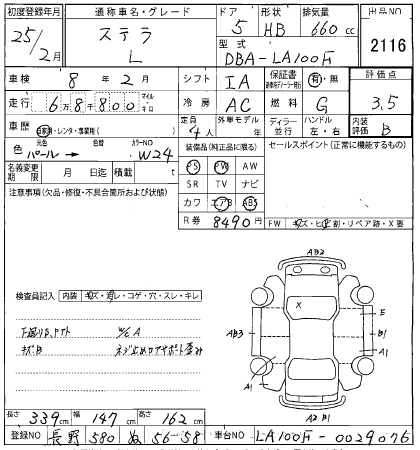 初度登録年月 通称車名・グレード ドア 形状 排気量 出品NO
25年2月 ステラ 5 HB 660cc
L 型式 2116
DBA-LA100F
車検 8年2月 シフト IA 保証書 有・無 評価点
走行 6万8千800 マイル キロ 冷房 AC 燃料 G 3.5
車歴 自家用・レンタ・事業用( ) 定員 4人 外車モデル 年 ディーラー 並行 ハンドル 左・右 内装評価 B
色 元色 パール→ 色替 カラーNO W24 装備品(純正品に限る) セールスポイント(正常に機能するもの)
名義変更期限 月 日迄 積載 t PS PW AW
注意事項(欠品・修復・不具合箇所および状態) SR TV ナビ
カワ エアB ABS
R券 8490円 FW キズ・ヒビ・割・リペア跡・X要
検査員記入 内装 キズ・汚レ・コゲ・穴・スレ・キレ
下廻りサ、アト W/C A
キズB ネジ止めロアサポート歪み
AB2
X
E
AB3 B1
A1 A1
A2 B1
長さ 339cm 幅 147cm 高さ 162cm
登録NO 長野 580 ぬ 56-58 車台NO LA100F-0029076